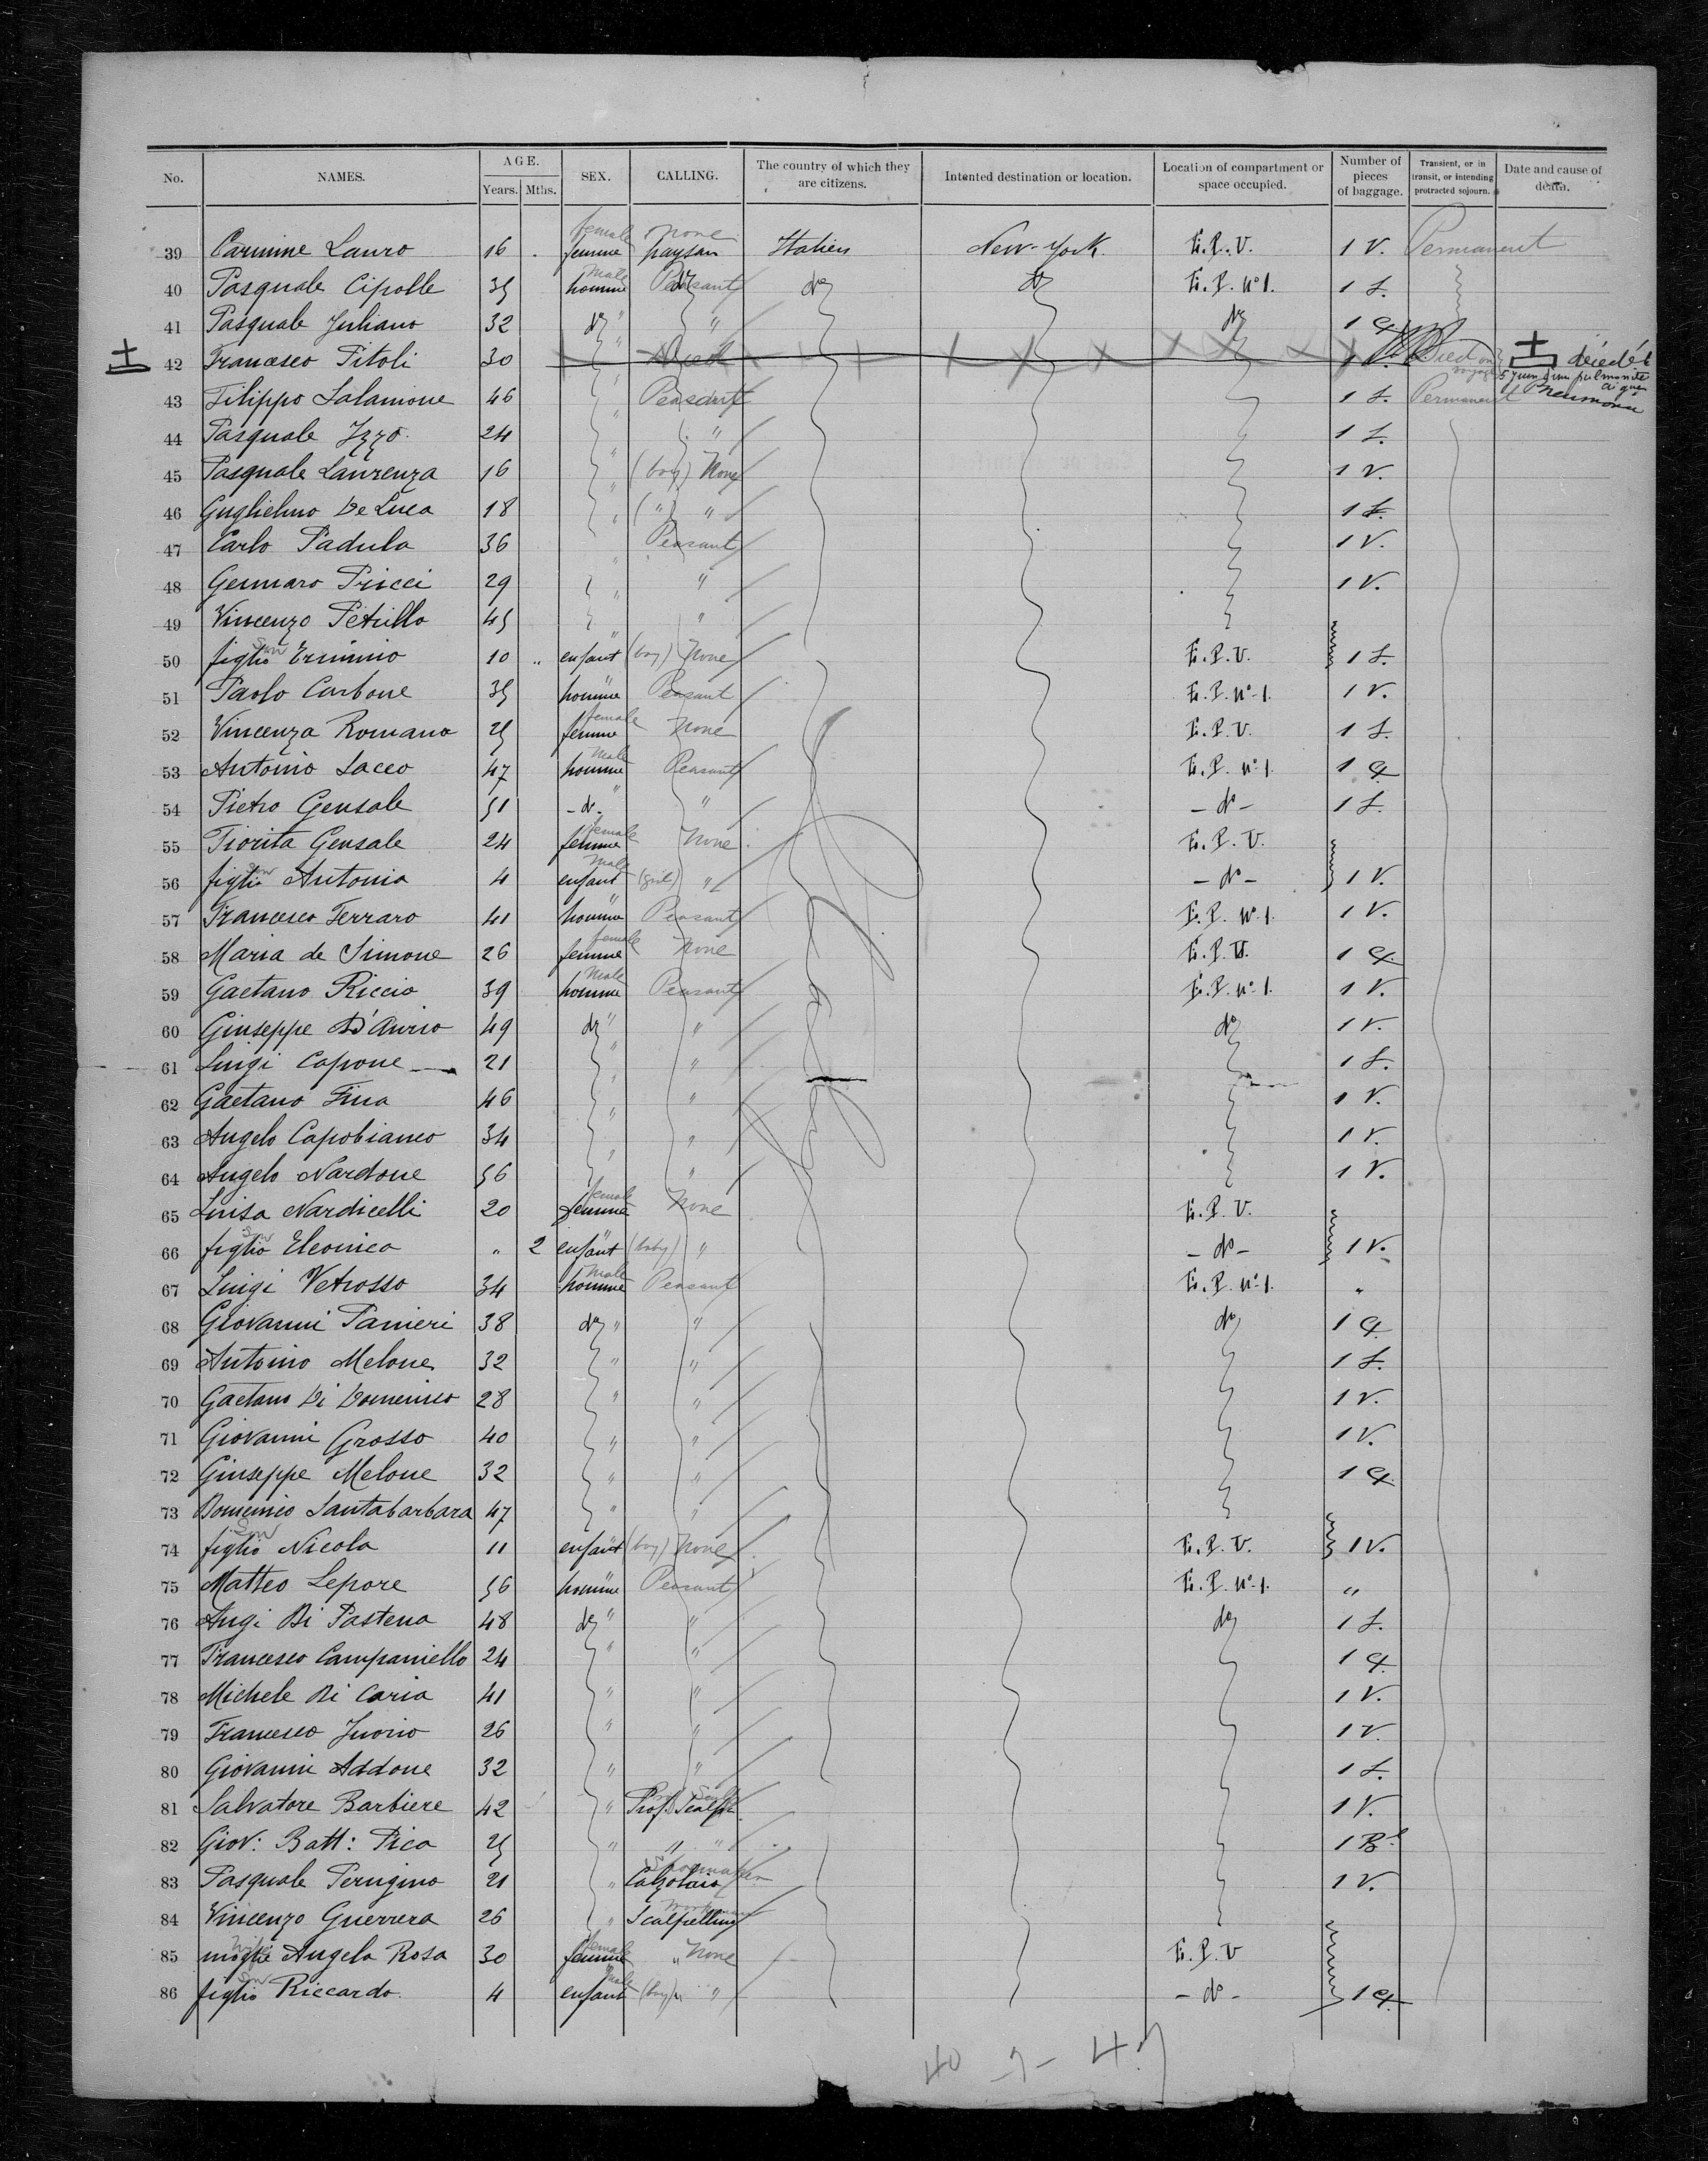 No. NAMES. AGE. Years. Mths. SEX. CALLING. The country of which they are citizens. Intented destination or location. Location of compartment or space occupied. Number of pieces of baggage. Transient, or in transit, or intending protracted sojourn. Date and cause of death.
39 Carmine Lauro 16 female femme none paysan Italien New-York E.P.V. 1 V. Permanent
40 Pasquale Cipolle 35 male homme Peasant do do E.P. No 1. 1 S.
41 Pasquale Juliano 32 do " " do 1 C.
42 Francesco Pitoli 30 " Died on voyage décédé le
43 Filippo Salamone 46 " Peasant 1 S. Permanent Pneumonia
44 Pasquale Izzo 24 " 1 S.
45 Pasquale Laurenza 16 " (boy) None 1 V.
46 Guglielmo De Luca 18 " (") " 1 S.
47 Carlo Padula 36 Peasant 1 V.
48 Gennaro Pricci 29 " " 1 V.
49 Vincenzo Petrillo 45 "
50 figlio son Erminio 10 " enfant (boy) None E.P.V. 1 S.
51 Paolo Carbone 35 homme Peasant E.P. No 1. 1 V.
52 Vincenza Romano 25 female femme None E.P.V. 1 S.
53 Antonio Sacco 47 male homme Peasant E.P. No 1. 1 C.
54 Pietro Gensale 51 - do - " " - do - 1 S.
55 Fiorita Gensale 24 female femme None E.P.V.
56 figlio son Antonio 4 male enfant (girl) " - do - 1 V.
57 Francesco Ferraro 41 homme " Peasant E.P. No 1. 1 V.
58 Maria de Simone 26 female femme None E.P.V. 1 C.
59 Gaetano Riccio 39 male homme Peasant E.P. No 1. 1 V.
60 Giuseppe D'Aurio 49 do " " do 1 V.
61 Luigi Capone 21 " " 1 S.
62 Gaetano Fina 46 " " 1 V.
63 Angelo Capobianco 34 " " 1 V.
64 Angelo Nardone 56 " 1 V.
65 Luisa Nardicelli 20 female femme None E.P.V.
66 figlio son Eleonica " 2 enfant (baby) " - do - 1 V.
67 Luigi Vetrosso 34 male homme Peasant E.P. No 1. "
68 Giovanni Panieri 38 do " " do 1 C.
69 Antonio Melone 32 " " 1 S.
70 Gaetano Di Domenico 28 " " 1 V.
71 Giovanni Grosso 40 " " 1 V.
72 Giuseppe Melone 32 " " 1 C.
73 Domenico Santabarbara 47 " "
74 figlio son Nicola 11 enfant (boy) None E.P.V. 1 V.
75 Matteo Lepore 56 homme Peasant E.P. No 1. "
76 Angi Di Pastena 48 do " " do 1 S.
77 Francesco Campaniello 24 " " 1 C.
78 Michele Di Caria 41 " " 1 V.
79 Francesco Juorio 26 " " 1 V.
80 Giovanni Addone 32 " " 1 S.
81 Salvatore Barbiere 42 " Prof. 1 V.
82 Giov: Batt: Pica 25 " " " 1 B.
83 Pasquale Perugino 21 " Shoemaker Calzolaio 1 V.
84 Vincenzo Guerrera 26 " Scalpellino
85 moglie wife Angela Rosa 30 female femme " None E.P.V
86 figlio son Riccardo. 4 male enfant (boy) " - do - 1 C.